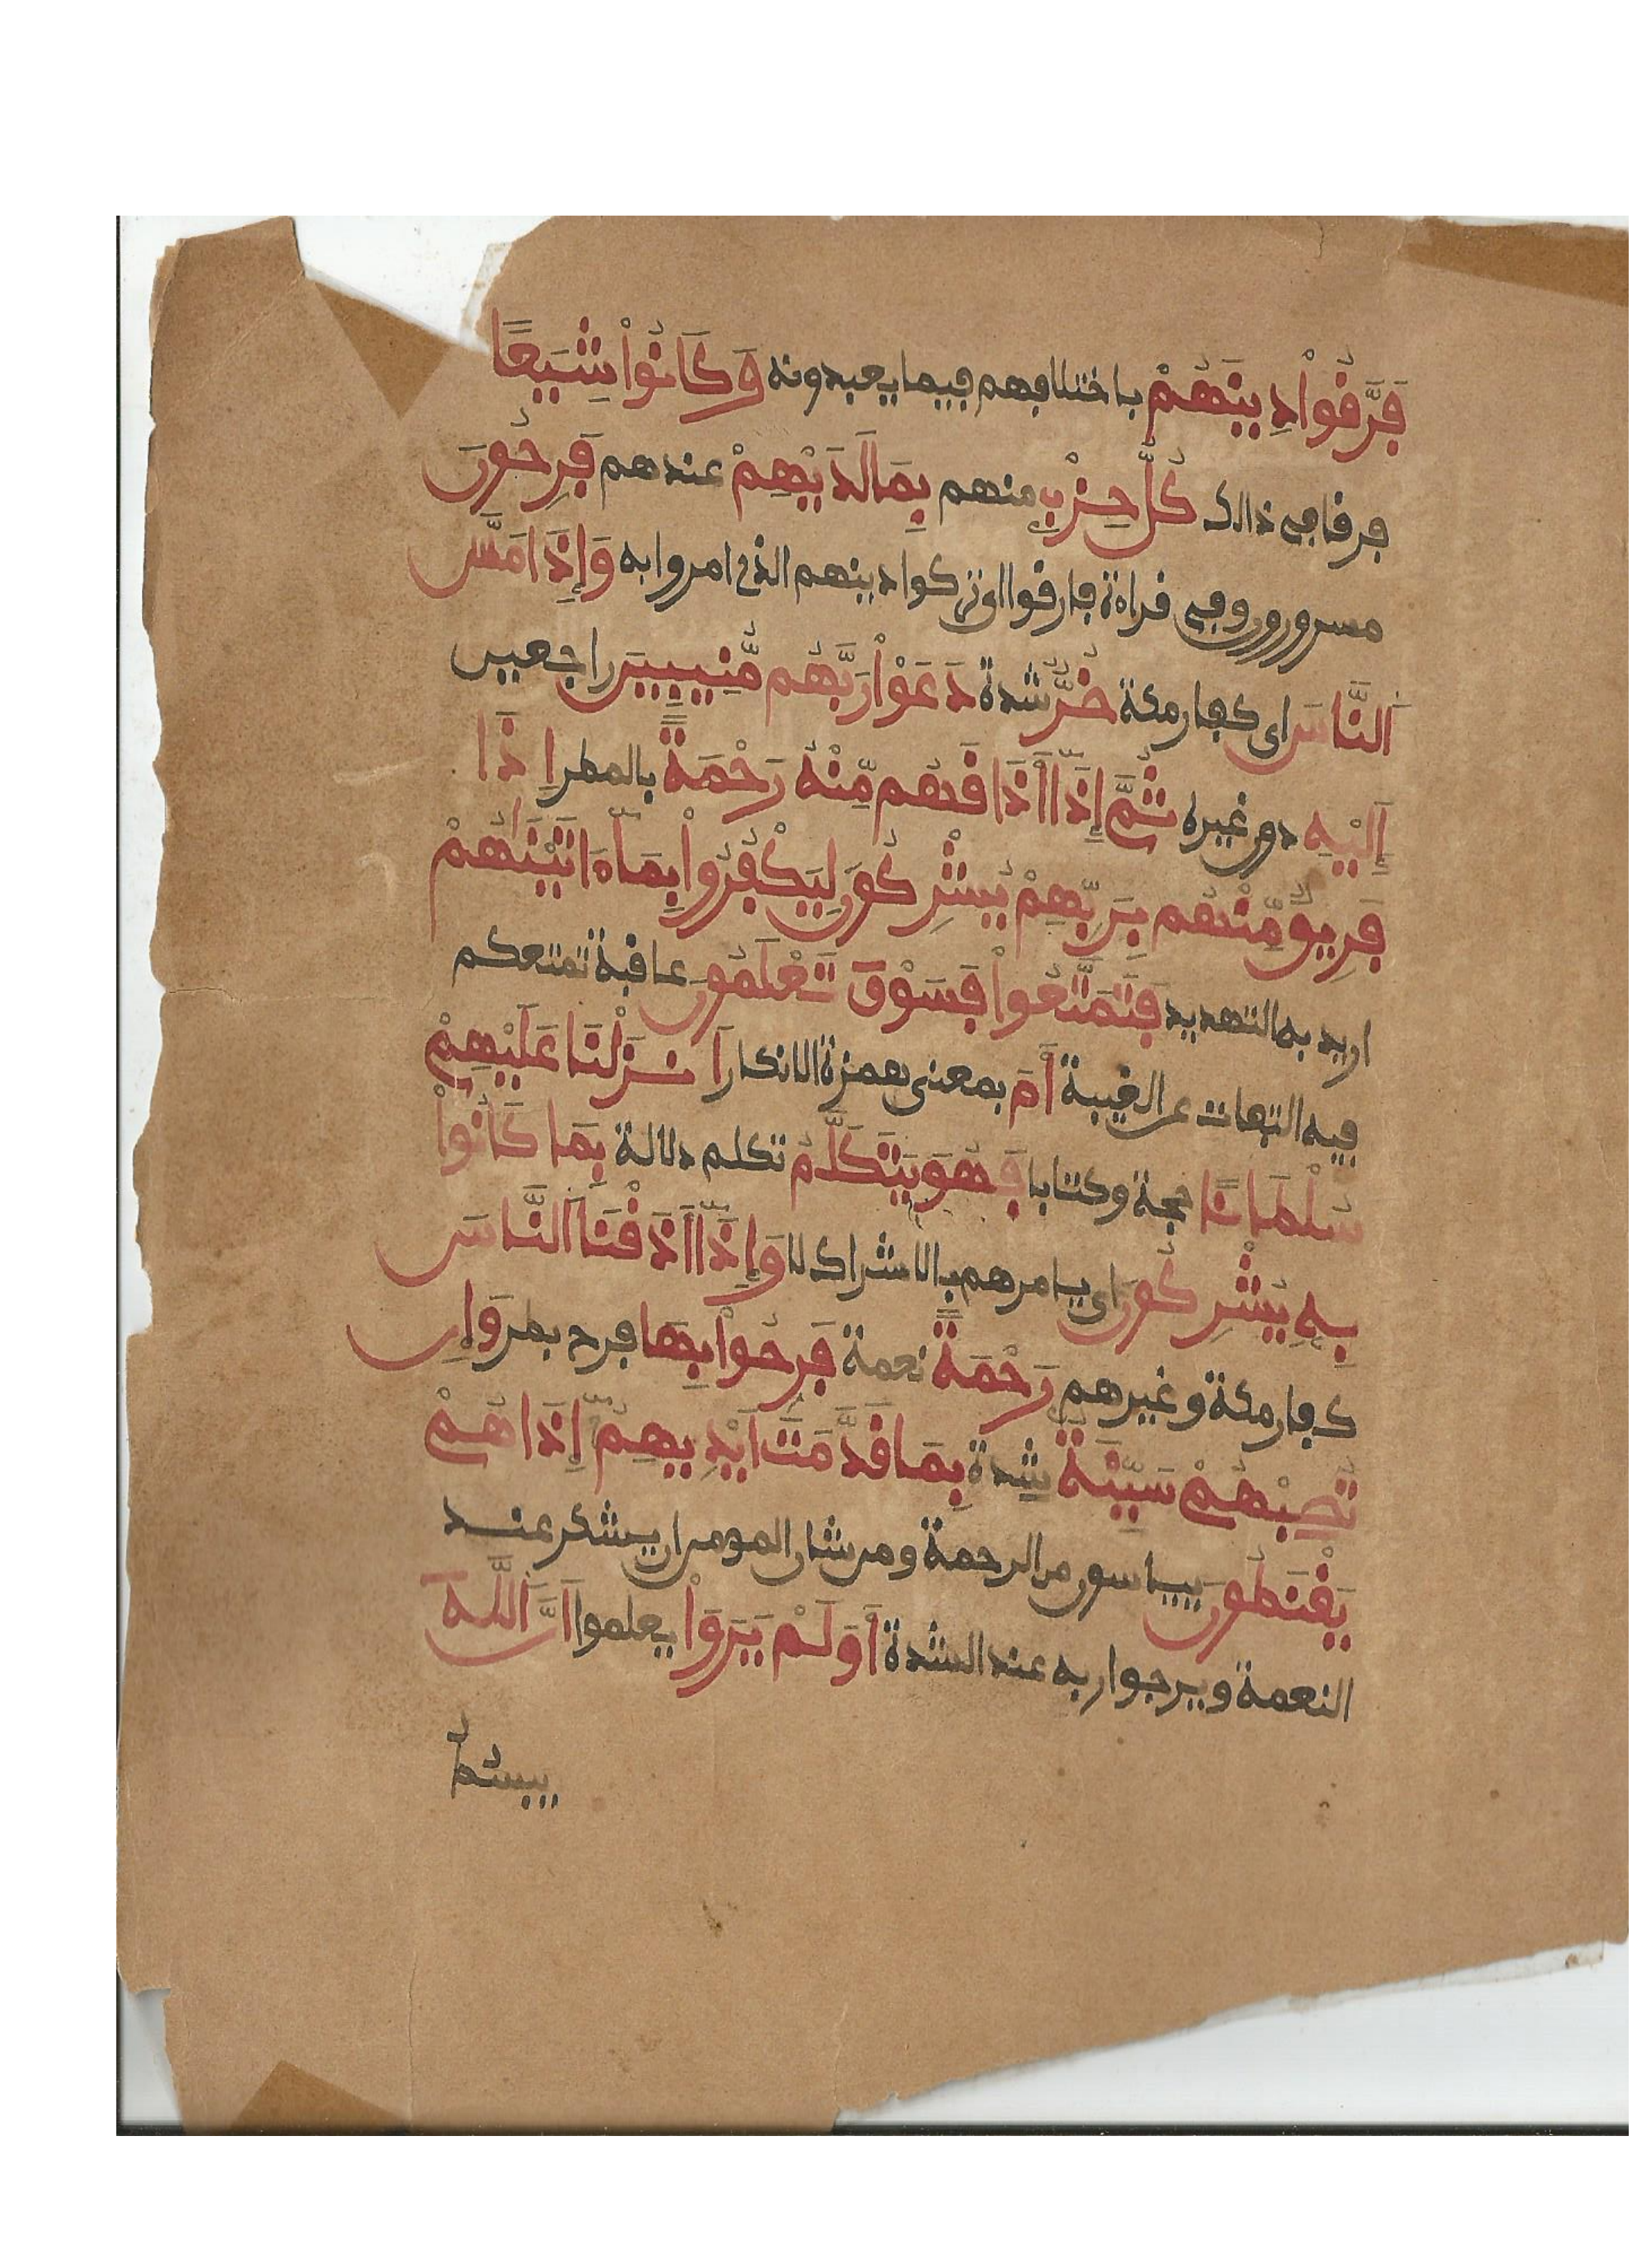 فَرَّقُواْ دِينَهُمْ باختلافهم فيما يعبدونه وَكَانُواْ شِيَعًا
فرقا في ذالك كُلُّ حِزْبٍ منهم بِمَا لَدَيْهِمْ عندهم فَرِحُونَ
مسرورون وفي قراءة فارقوا اي تركوا دينهم الذي امروا به وَإِذَا مَسَّ
اَلنَّاسَ اي كفار مكة ضُرٌّ شدة دَعَوْاْ رَبَّهُم مُّنِيبِينَ راجعين
إِلَيْهِ دون غيره ثُمَّ إِذَا أَذَاقَهُم مِّنْهُ رَحْمَةً بالمطر إِذَا
فَرِيقٌ مِّنْهُم بِرَبِّهِمْ يُشْرِكُونَ لِيَكْفُرُواْ بِمَا ءَاتَيْنَٰهُمْ
اريد به التهديد فَتَمَتَّعُواْ فَسَوْفَ تَعْلَمُونَ عاقبة تمتعكم
فيه التفات عن الغيبة أَمَ بمعنى همزة الانكار اَنزَلْنَا عَلَيْهِمْ
سُلْطَانًا حجة وكتابا فَهُوَ يَتَكَلَّمُ تكلم دلالة بِمَا كَانُواْ
بِهِ يُشْرِكُونَ اي يامرهم بالاشراك لا وَإِذَا أَذَقْنَا اَلنَّاسَ
كفار مكة وغيرهم رَحْمَةً نعمة فَرِحُواْ بِهَا فرح بطر وَإِن
تُصِبْهُمْ سَيِّئَةٌ شدة بِمَا قَدَّمَتَ اَيْدِيهِمُ إِذَا هُمْ
يَقْنَطُونَ ييياسون من الرحمة ومن شان المومن ان يشكر عند
النعمة ويرجوا ربه عند الشدة أَوَلَمْ يَرَوَاْ يعلموا اَنَّ اَللَّهَ
يبسُطُ